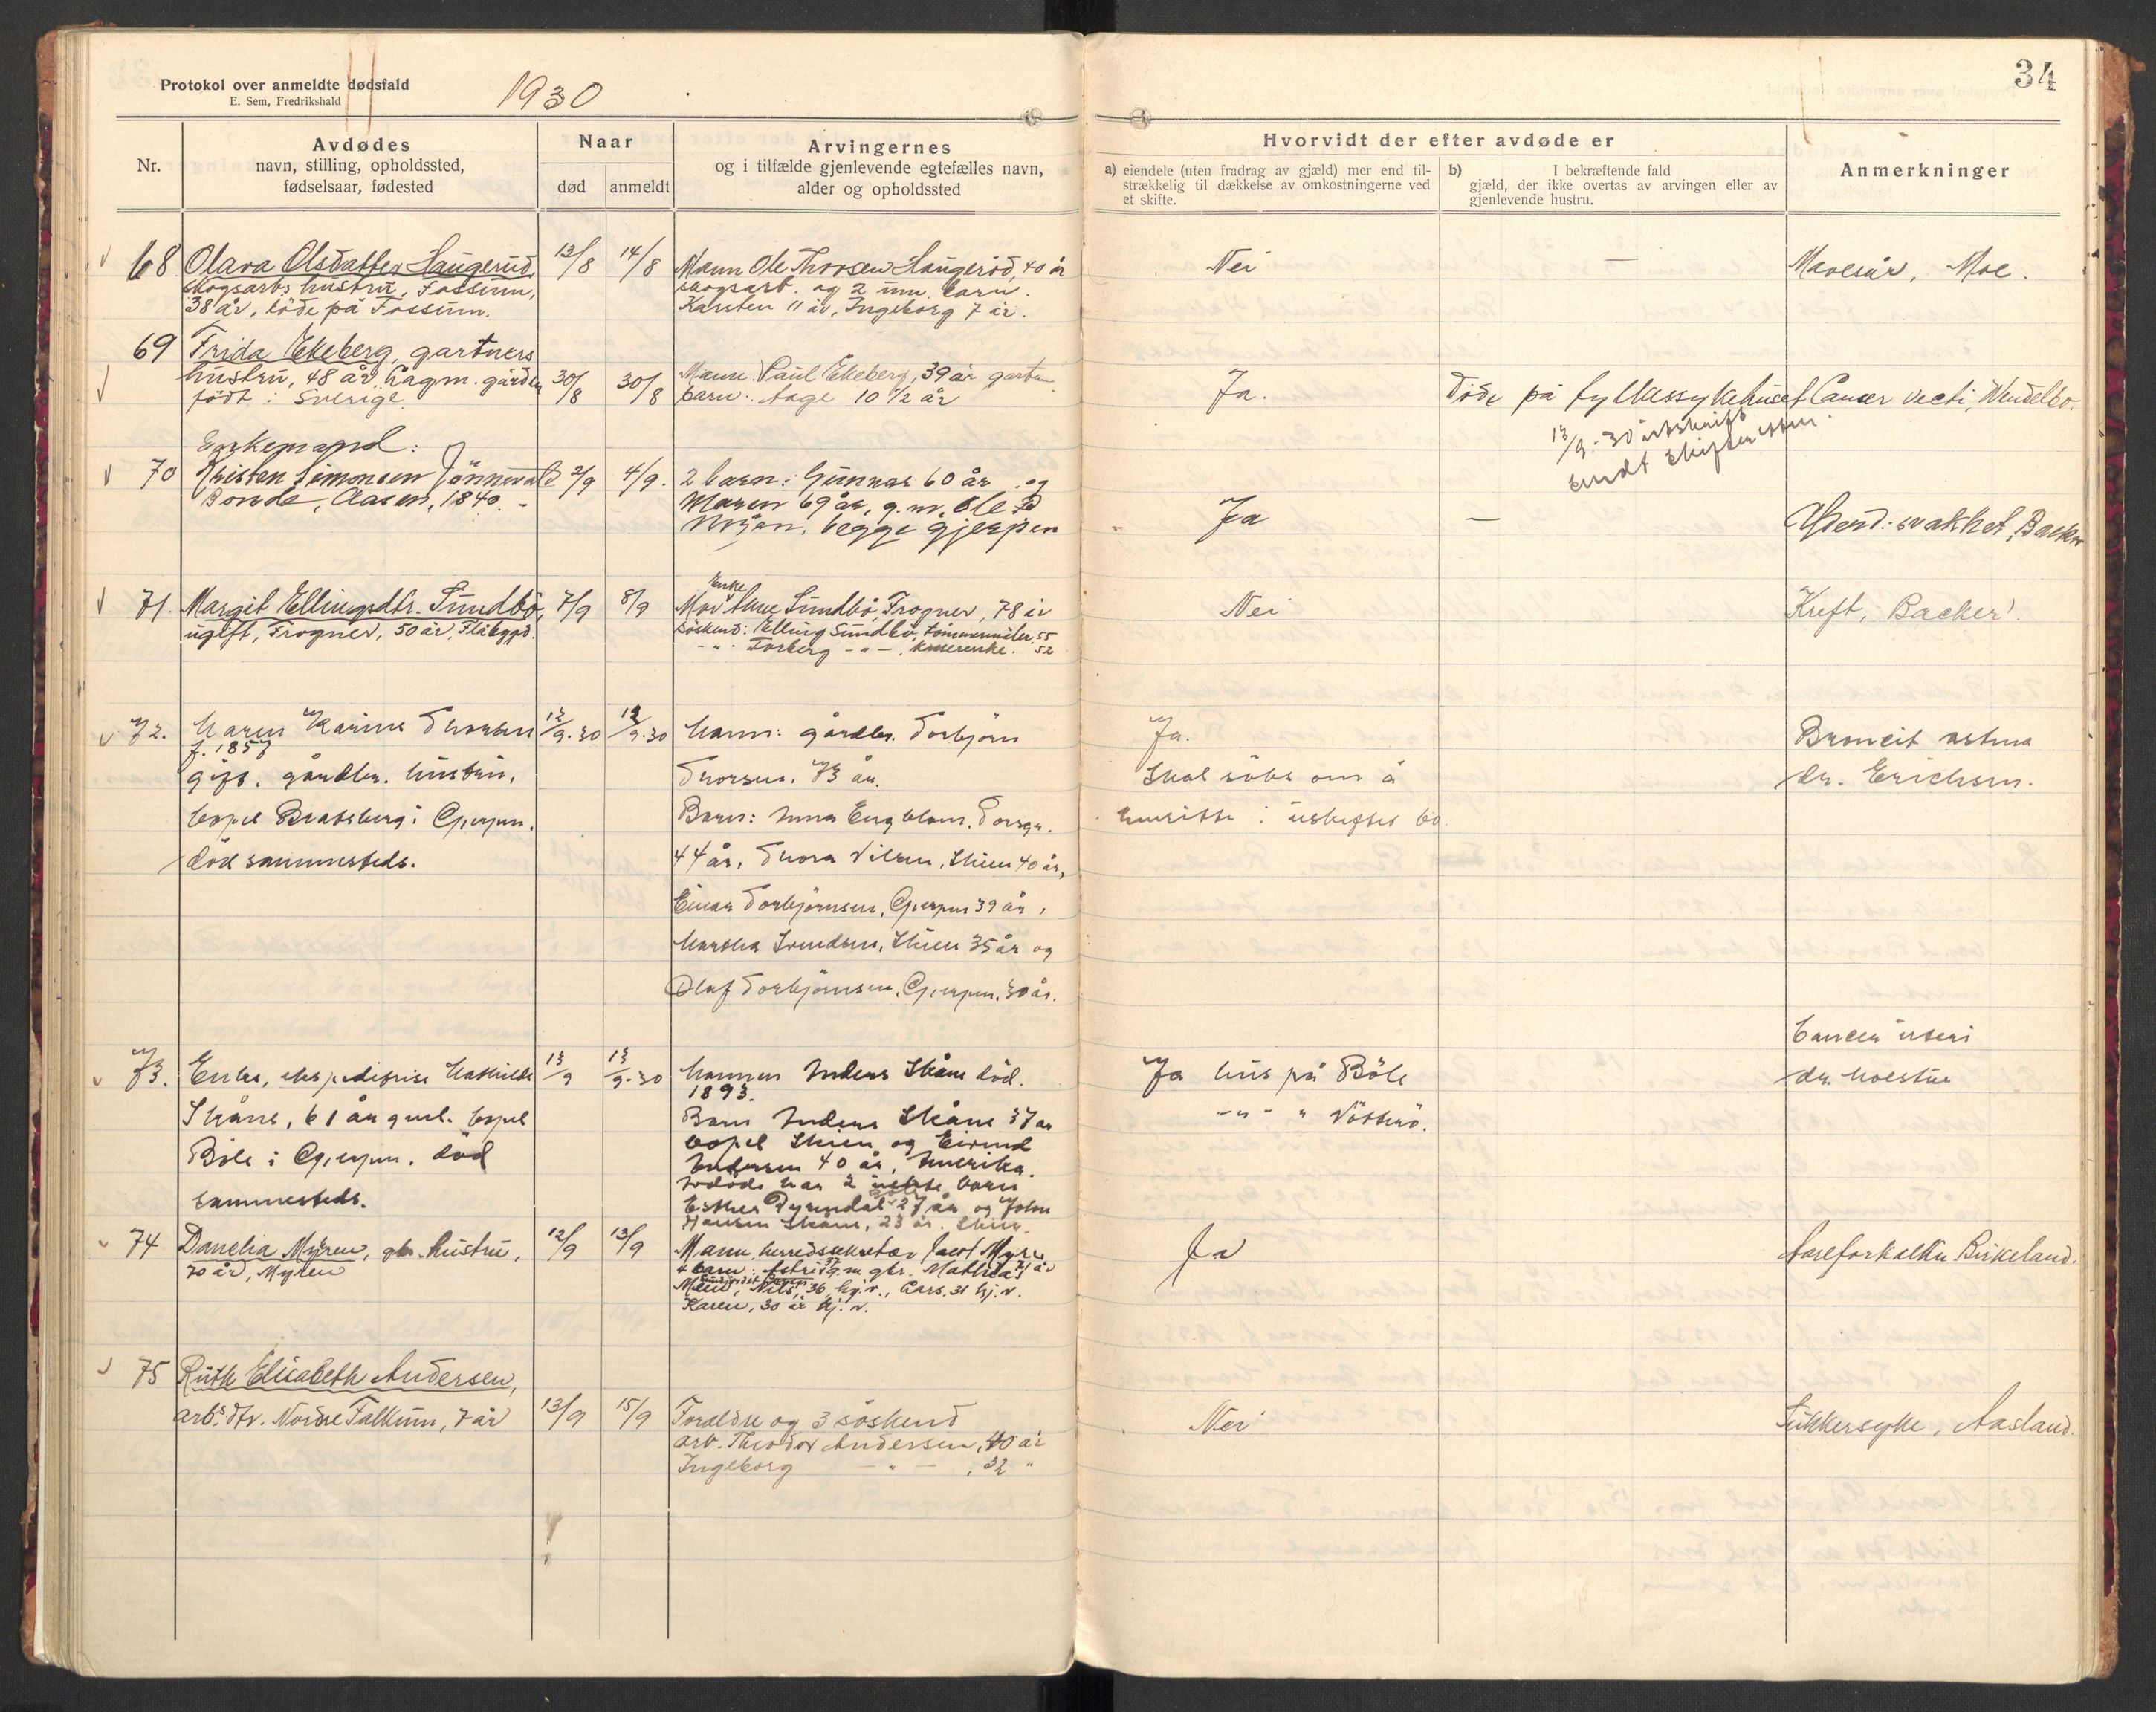 Protokol over anmeldte dødsfald
E. Sem, Fredrikshald
1930
34
Nr.
Avdødes
navn, stilling, opholdssted,
fødselsaar, fødested
Naar
død
anmeldt
Arvingernes
og i tilfælde gjenlevende egtefælles navn,
alder og opholdssted
Hvorvidt der efter avdøde er
a) eiendele (uten fradrag av gjæld) mer end til-
strækkelig til dækkelse av omkostningerne ved
et skifte.
b) I bekræftende fald
gjæld, der ikke overtas av arvingen eller av
gjenlevende hustru.
Anmerkninger
68 Olava Olsdatter Haugerud,
skogsarbs hustru, Fossum,
38 år, død på Fossum.
13/8
14/8
Mann Ole Thorsen Haugerød, 40 år
skogsarb. og 2 um. barn.
Karsten 11 år, Ingeborg 7 år.
Nei
—
Mavesår, Moe.
69 Frida Ekeberg, gartners
hustru, 48 år, Lagm. gården
født i Sverige
30/8
30/8
Mann. Paul Ekeberg, 39 år gartn.
barn: Aage 10 1/2 år
Ja.
døde på fylkessykehuset Cancer recti, Wendelbo.
13/9-30 utskrift
sendt skifteretten.
Enkemand:
70 Kristen Simonsen Jønnevald
Bonde, Aasen, 1840.-
2/9
4/9.
2 barn: Gunnar 60 år og
Maren 69 år, g.m. Ole P
begge Gjerpen
Ja
—
Alderd. svakhet, Backer
71. Margit Ellingsdtr. Sundbø,
ugift, Frogner, 50 år, Flåbygd.
7/9
8/9
Enke
Mor Anne Sundbø, Frogner, 78 år
søskend: Elling Sundbø, tømmermåler, 55
-"- Torbjørg -"-, 52
Nei
Kreft, Backer.
72. Maren Karine Thorsen
f. 1857
gift. gårdbr. hustru,
bopel Bratsberg i Gjerpen.
død sammesteds.
12/9-30
12/9-30
Mann: gårdbr. Torbjørn
Thorsen. 73 år.
Barn: Anna Engblom, Torsgt.
44 år, Thora Nilsen, Skien 40 år,
Einar Torbjørnsen, Gjerpen 39 år,
Martha Svendsen, Skien 35 år og
Olaf Torbjørnsen, Gjerpen, 30 år.
Ja.
Skal søke om å
hensitte i uskiftet bo
Broncit astma
dr. Erichsen.
73. Enke, ekspeditrise Mathilde
Skåne, 61 år gml. bopel
Bøle i Gjerpen. død
sammesteds.
13/9
13/9-30
Mannen Anders Skåne død.
1893.
Barn Anders Skåne 37 år
bopel Skien og Eivind
Andersen 40 år, Amerika.
Avdøde har 2 uekte barn
Esther 27 år og John
Hansen Skåne, 23 år. Skien
Ja hus på Bøle
-"- "
Cancer uteri
dr. Holstue
74 Danelia Myren, gbr. hustru,
70 år, Myren
12/9
13/9
Mann, herredssekretær Jacob Myren 71 år
4 barn: g.m. gbr. Mathias
Nils, 36, hj.v., Lars. 31 hj.v.
Karen, 30 år hj.v.
Ja
Aareforkalkn. Birkeland.
75 Ruth Elisabeth Andersen,
arbs. dtr. Nordre Falkum, 7 år
13/9
15/9
Forældre og 3 søskend
arb. Theodor Andersen, 40 år
Ingeborg -"-, 32 "
Nei
Sukkersyke, Aasland.